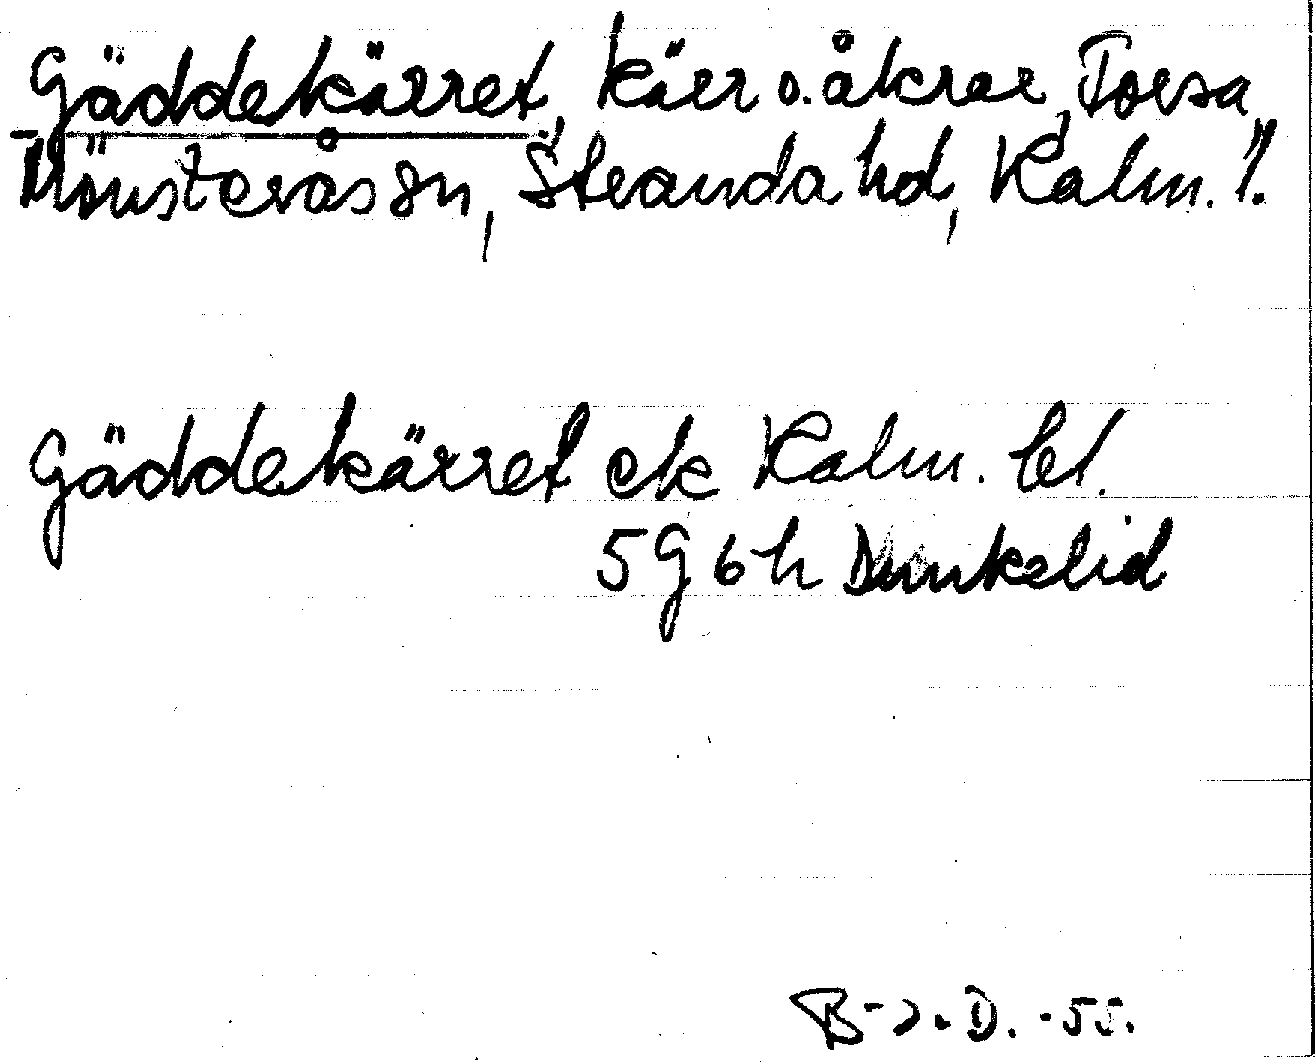 Gäddekärret, kärr o. åkrar, Torsa
Mönsterås sn, Stranda hd, Kalm. l.
Gäddekärret ek Kalm. bl.
5 G 6 h Dunkelid
-55.